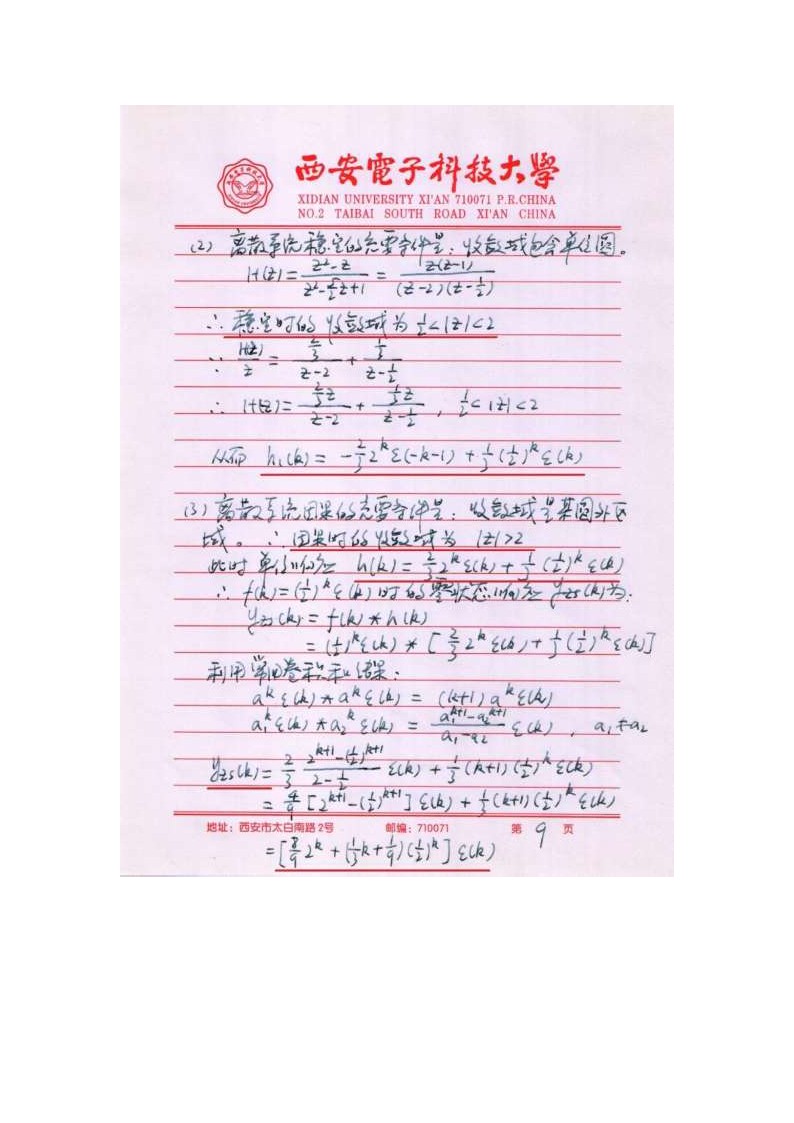 西安電子科技大學
XIDIAN UNIVERSITY XI'AN 710071 P.R.CHINA
NO.2 TAIBAI SOUTH ROAD XI'AN CHINA
(2) 离散系统稳定的充要条件是：收敛域包含单位圆。
H(z) = \frac{z²-z}{z²-\frac{5}{2}z+1} = \frac{z(z-1)}{(z-2)(z-\frac{1}{2})}
∴ 稳定时的收敛域为 \frac{1}{2}<|z|<2
∵ \frac{H(z)}{z} = \frac{\frac{2}{3}}{z-2} + \frac{\frac{1}{3}}{z-\frac{1}{2}}
∴ H(z) = \frac{\frac{2}{3}z}{z-2} + \frac{\frac{1}{3}z}{z-\frac{1}{2}} , \frac{1}{2}<|z|<2
从而 h₁(k) = -\frac{2}{3}2^k ε(-k-1) + \frac{1}{3}(\frac{1}{2})^k ε(k)
(3) 离散系统因果的充要条件是：收敛域是某圆外区
域。∴ 因果时的收敛域为 |z|>2
此时单位响应 h(k) = \frac{2}{3}2^k ε(k) + \frac{1}{3}(\frac{1}{2})^k ε(k)
∴ f(k) = (\frac{1}{2})^k ε(k) 时的零状态响应 y_{zs}(k)为:
y_{zs}(k) = f(k) * h(k)
= (\frac{1}{2})^k ε(k) * [\frac{2}{3}2^k ε(k) + \frac{1}{3}(\frac{1}{2})^k ε(k)]
利用常用卷积和结果：
a^k ε(k) * a^k ε(k) = (k+1) a^k ε(k)
a₁^k ε(k) * a₂^k ε(k) = \frac{a₁^{k+1}-a₂^{k+1}}{a₁-a₂} ε(k) , a₁≠a₂
y_{zs}(k) = \frac{2}{3} \frac{2^{k+1}-(\frac{1}{2})^{k+1}}{2-\frac{1}{2}} ε(k) + \frac{1}{3}(k+1)(\frac{1}{2})^k ε(k)
= \frac{4}{9}[2^{k+1}-(\frac{1}{2})^{k+1}] ε(k) + \frac{1}{3}(k+1)(\frac{1}{2})^k ε(k)
地址：西安市太白南路2号 邮编：710071 第 9 页
= [\frac{8}{9}2^k + (\frac{1}{3}k+\frac{1}{9})(\frac{1}{2})^k] ε(k)